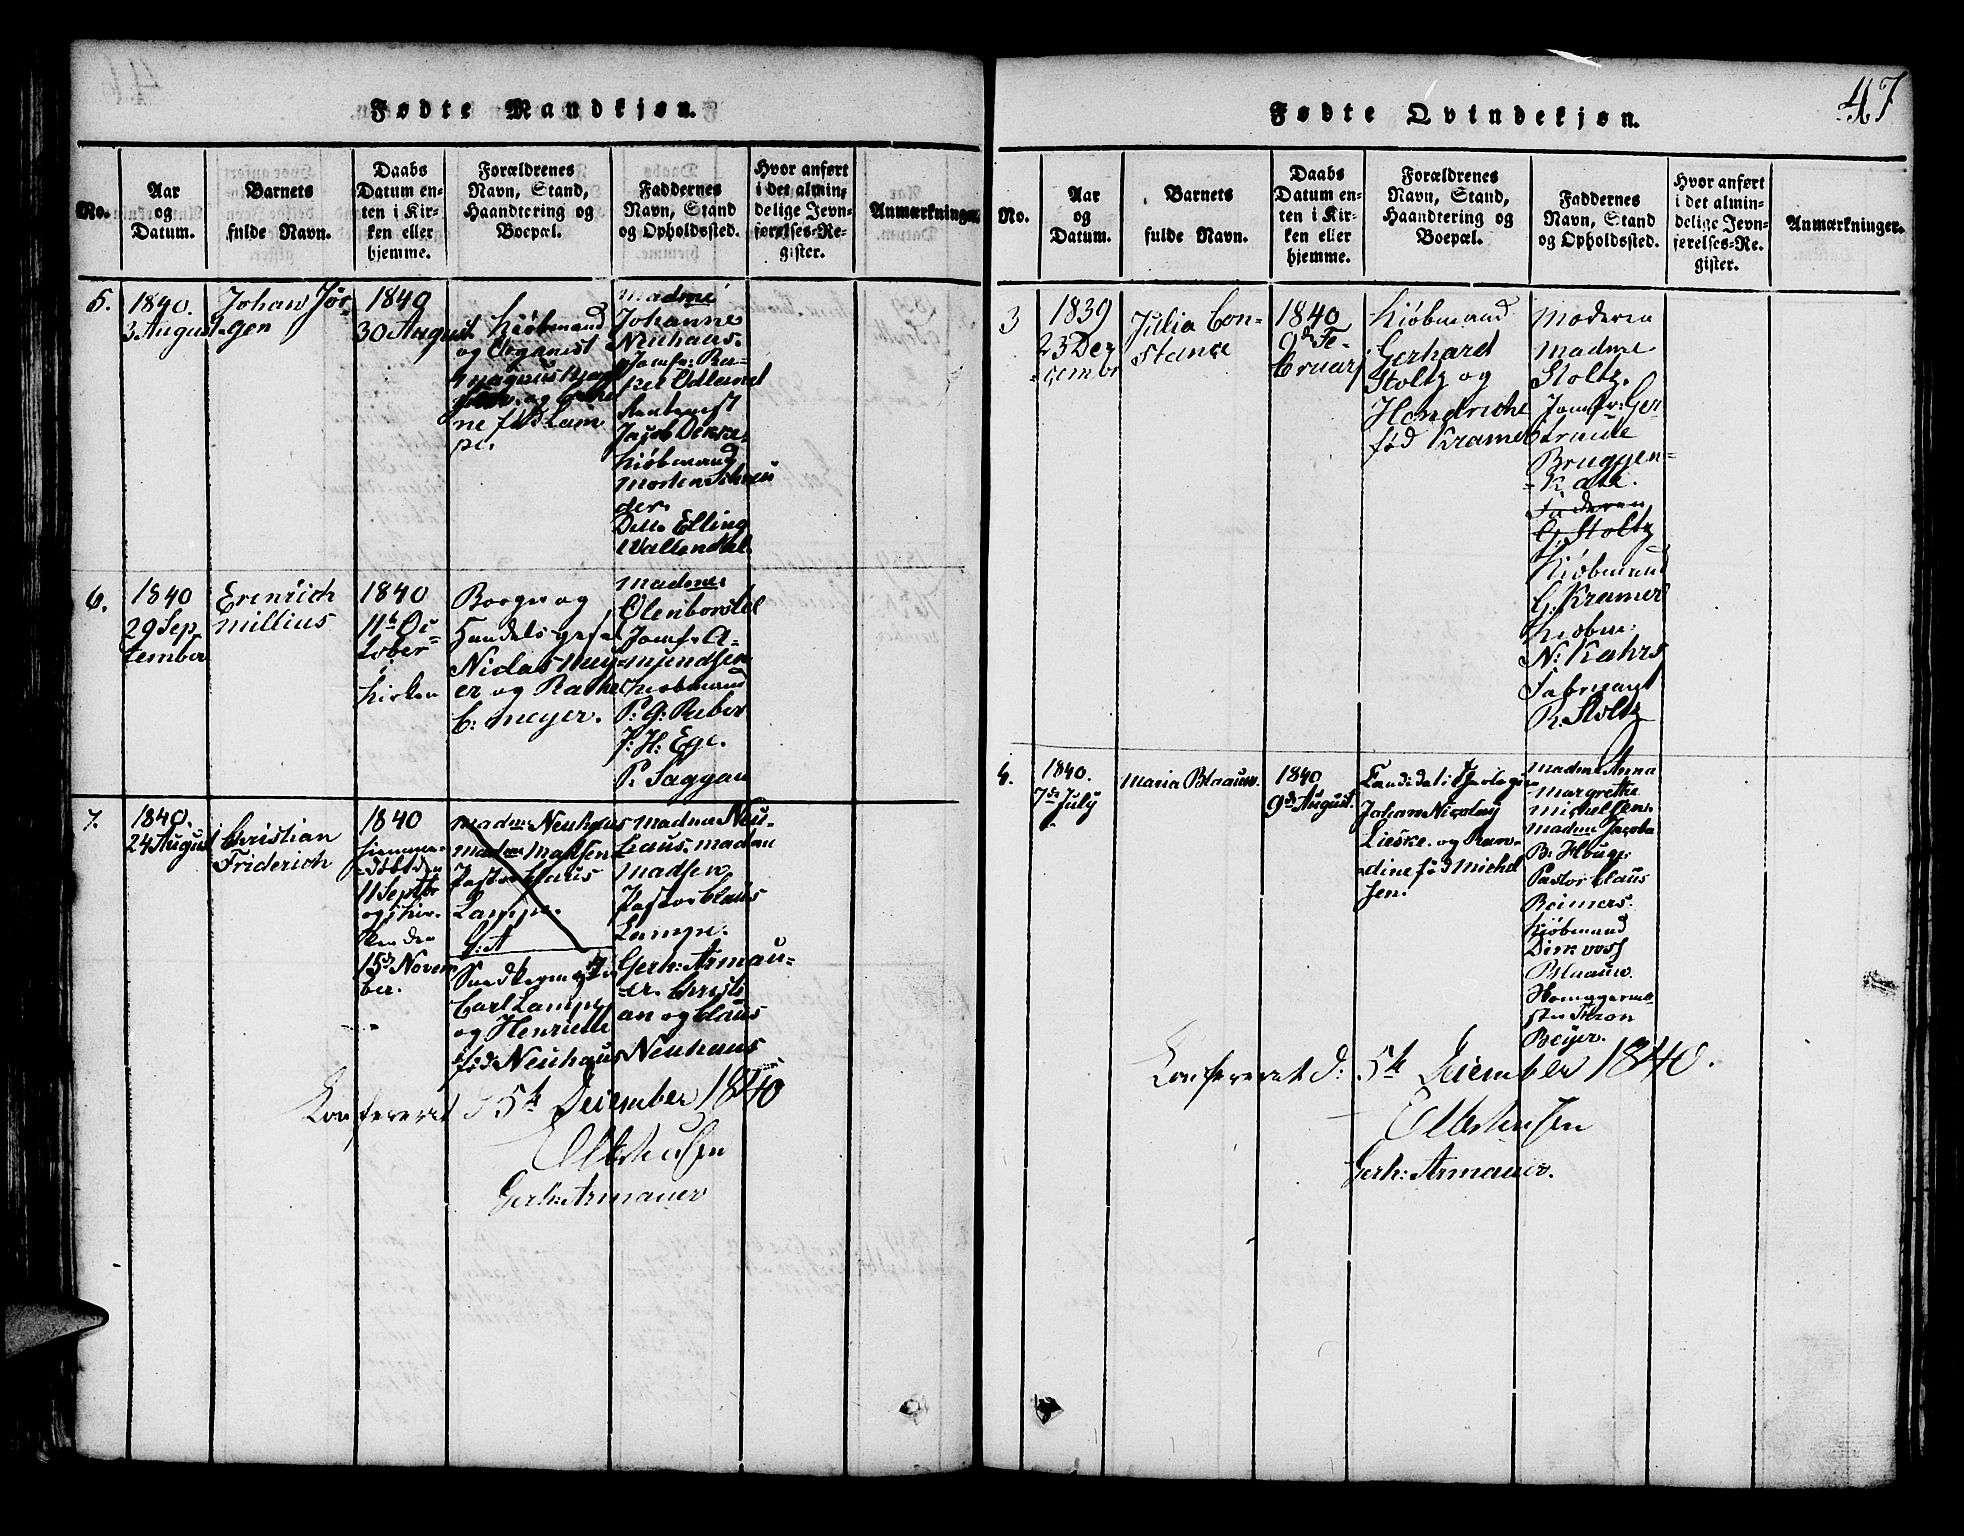 47
Fødte Mandkjøn.
No.
Aar
og
Datum.
Barnets
fulde Navn.
Daabs
Datum en-
ten i Kir-
ken eller
hjemme.
Forældrenes
Navn, Stand,
Haandtering og
Boepæl.
Faddernes
Navn, Stand
og Opholdssted.
Hvor anført
i det almin-
delige Jevn-
førelses-Re-
gister.
Anmærkninger.
5.
1840.
3 August
Johan Jør-
gen
1840
30 August
Kiöbmand
og Organist
Magnus
og Cathe
ne född Lam
pe.
Madme
Johanne
Neuhaus.
Jomfr: Ra-
kel Odland
Jacob Dekke
Kiöbmand
Morten Schreu
der.
Ditto Elling
Wallendal.
6.
1840
29 Sep
tember
Erenrich
Millius
1840
11te Oc-
tober
i
Kirken
Borger og
Handels
Niclas Mey-
er og Rakel
C: Meyer.
Madme
Olenborstel
Jomfr A-
mundsen
Kiöbmand
P. G: Reber
J: H: Ege.
P. Saggau
7.
1840.
24 August
Christian
Friderich
1840
hiemme-
döbt den
11 Septbr
og i Kir-
ken den
15de Novem
ber.
Madme Neuhaus
Madme Madsen
Pastor Claus
Lampe.
G: A
Carl Lampe
og Henriette
föd Neuhaus
Madme Neu-
haus. Madm
Madsen
Pastor Claus
Lampe.
Gerh: Armau-
er. Christi
an og Claus
Neuhaus
Konfereret d 5te December 1840
Gerh: Armauer
Fødte Qvindekjøn.
No.
Aar
og
Datum.
Barnets
fulde Navn.
Daabs
Datum en-
ten i Kir-
ken eller
hjemme.
Forældrenes
Navn, Stand,
Haandtering og
Boepæl.
Faddernes
Navn, Stand
og Opholdssted.
Hvor anført
i det almin-
delige Jevn-
førelses-Re-
gister.
Anmærkninger.
3
1839
23 De-
cembr
Julia Con-
stance
1840
9de Fe-
bruarj
Kiöbmand
Gerhard
Stoltz og
Hendriche
föd Kramer
Moderen
Madme
Stoltz.
Jomfr: Ger
trude
Bruggen-
kate.
Faderen
G. Stoltz
Kiöbmand
G. Kramer
Kiöbm:
N: Kahrs
Fabricant
R: Stoltz
4.
1840.
7de July
Maria Blaauw.
1840
9de August.
Candidat i Theologie
Johan Nicolay
Lieske. og Ran-
dine föd Michel
sen.
Madme Anna
Margrethe
Michelsen.
Madme Jacoba
Pastor Claus
Reimers.
Kiöbmand
Dirk vos
Blaauw.
ster
Beyer.
Konfereret d: 5te December 1840.
Gerh: Armauer.